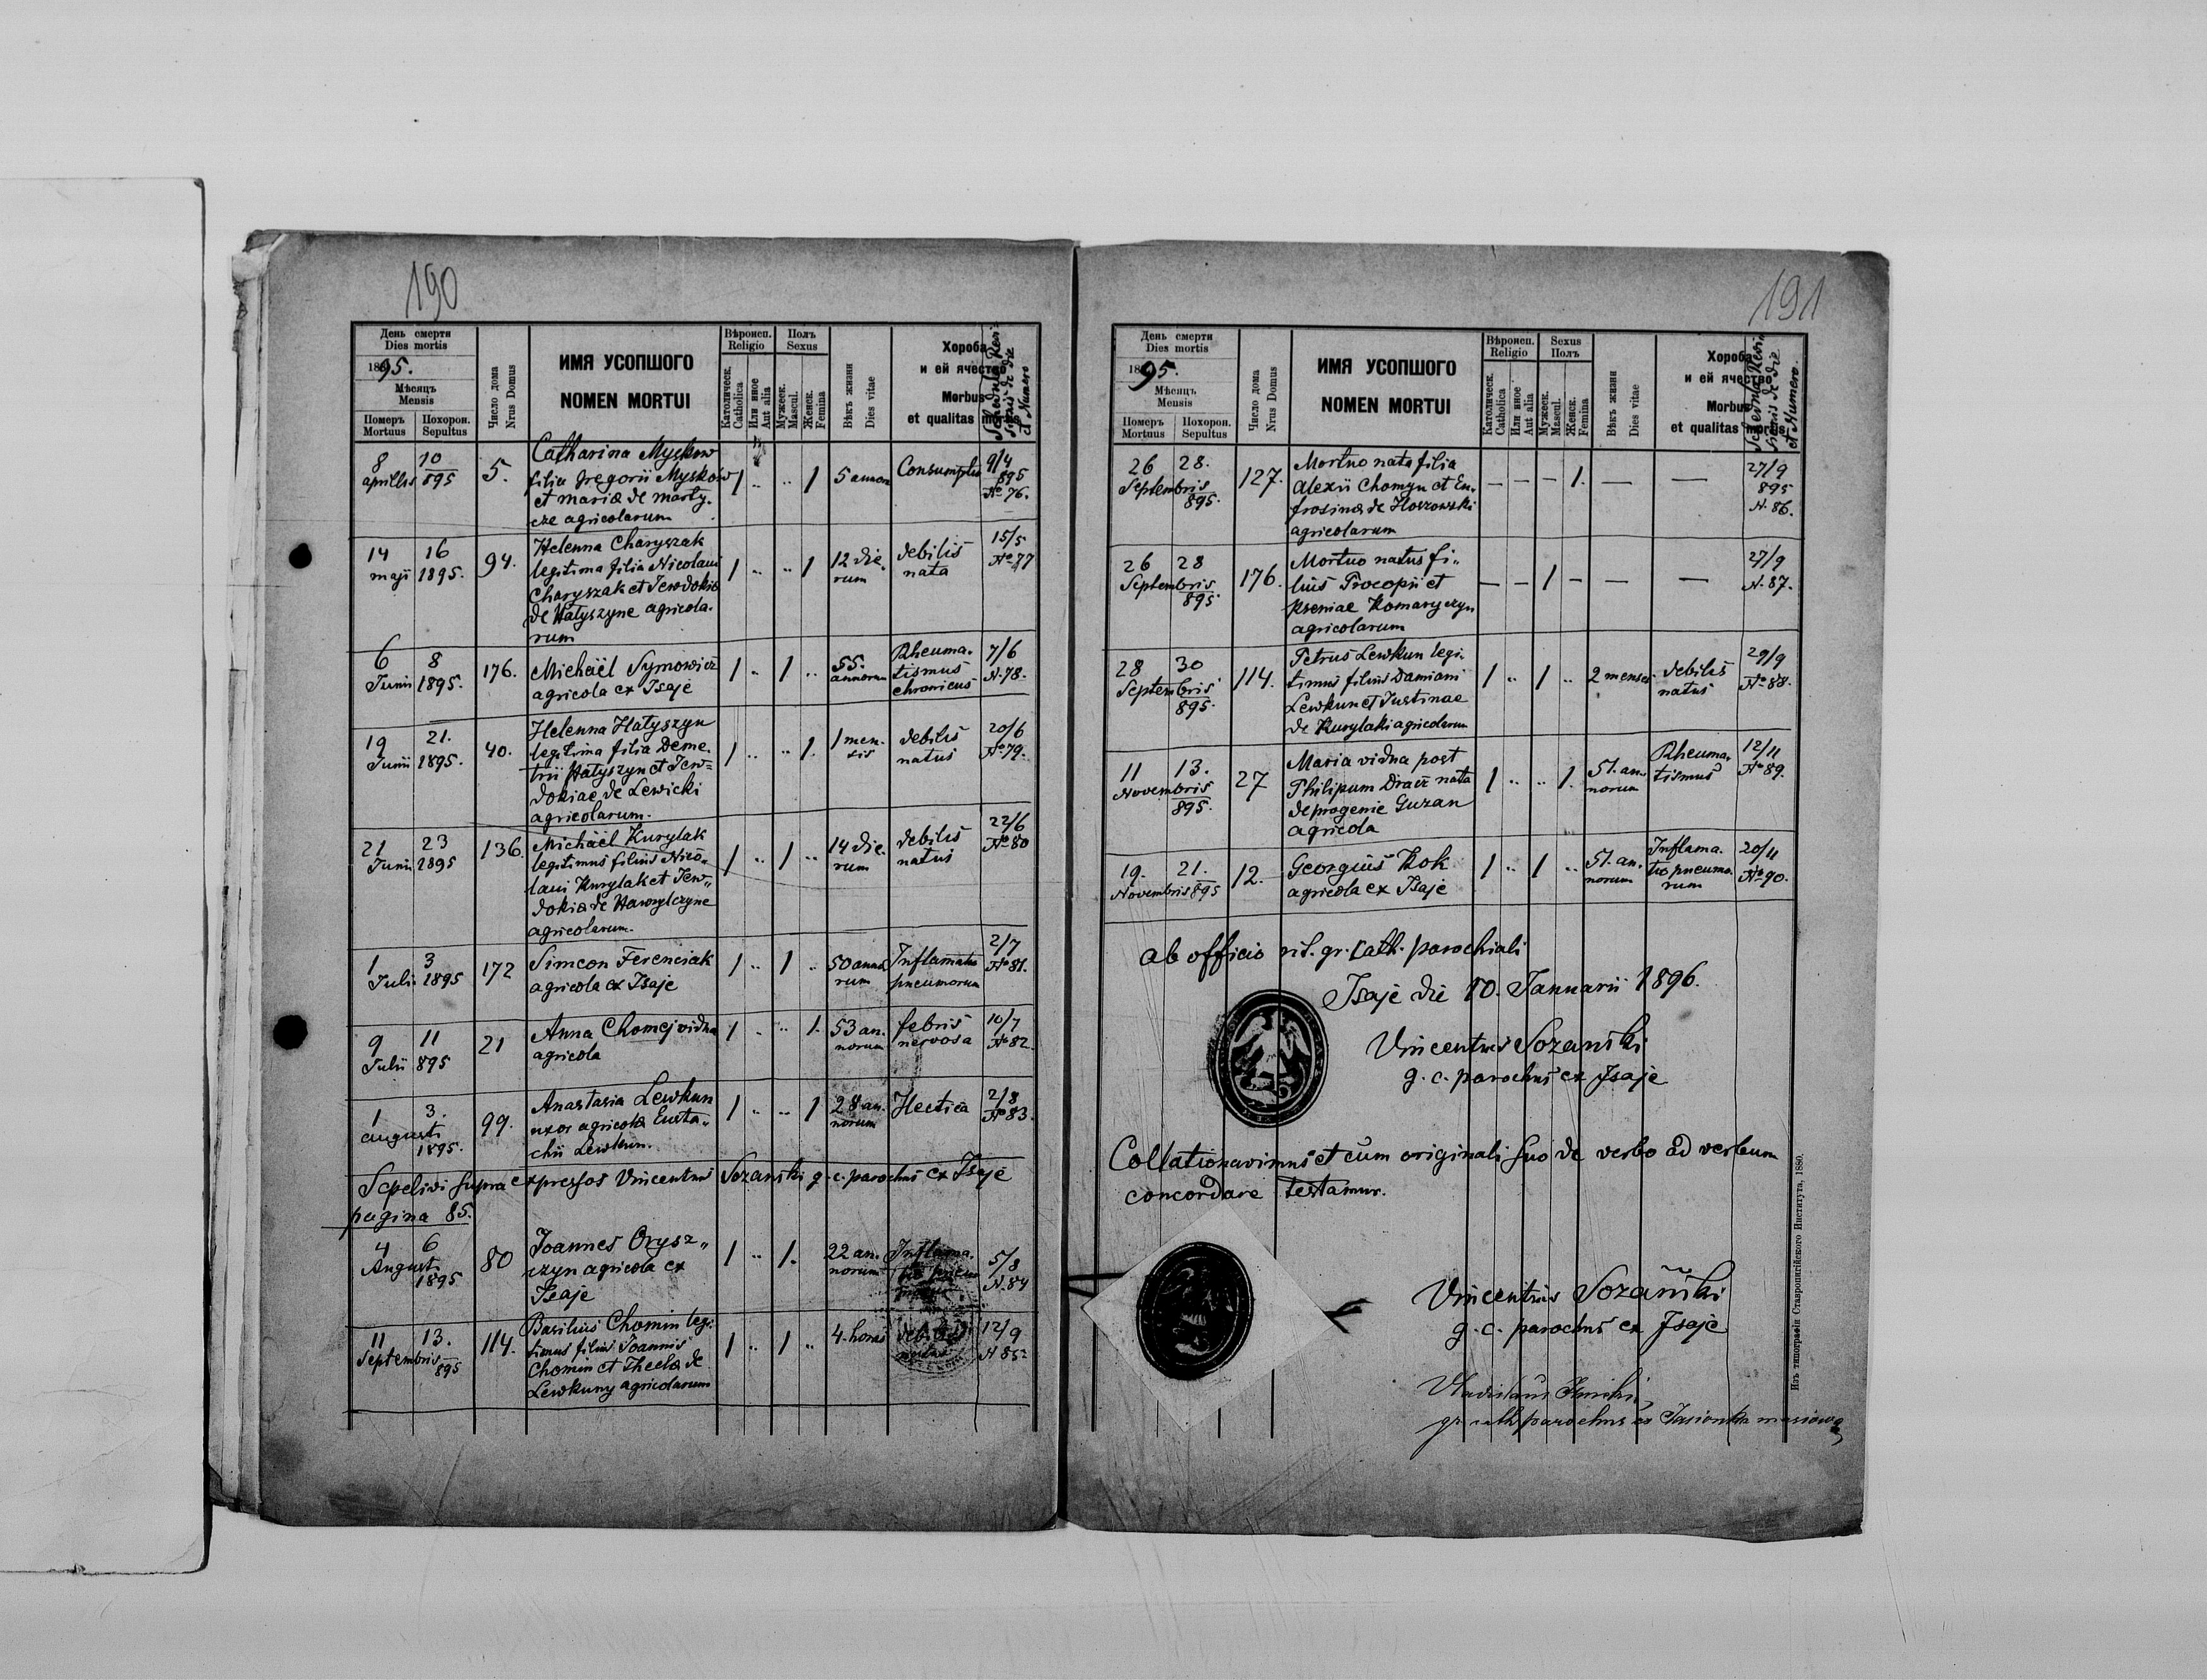 190
День смерти
Dies mortis
1895.
Мѣсяцъ
Mensis
Померъ
Mortuus
Похорон.
Sepultus
Число дома
Nrus Domus
ИМЯ УСОПШОГО
NOMEN MORTUI
Вѣроисп.
Religio
Католическ.
Catholica
Или иное
Aut alia
Полъ
Sexus
Мужеск.
Mascul.
Женск.
Femina
Вѣкъ жизни
Dies vitae
Хороба
и ей ячество
Morbus
et qualitas mortis
et Numero
8 aprillis 10 895 5. Catharina Myskow
filia Gregorii Myskow
et maria de marty-
cze agricolarum
1 .. .. 1 5 annor. 9/4 895 No 76.
14 maji 16 1895. 94. Helenna Charyszak
legitima filia Nicolaui
Charyszak et Jewdokia
de Hatyszyne agricola-
rum
1 .. .. 1 12 die-
rum debilis
nata 15/5 No 77
6 Junii 8 1895. 176. Michaël Symowicz
agricola ex Isaje
1 .. 1 .. 55.
annorum Rheuma-
tismus
chronicus 7/6 N. 78.
19 Junii 21. 1895. 40. Helenna Hatyszyn
legitima filia Deme-
trii Hatyszyn et Jew=
dokiae de Lewicki
agricolarum.
1 .. .. 1. 1 men-
sis debilis
natus 20/6 No 79.
21 Junii 23 1895 136. Michaël Kurylak
legitimus filius Nico-
laui Kurylak et Jew„
dokia de Hawrylczyne
agricolarum.
1 .. 1 .. 14 die-
rum debilis
natus 22/6 No 80
1 Julii 3 1895 172 Simeon Ferenciak
agricola ex Isaje
1 .. 1 .. 50 anno
rum Inflamatio
pneumorum 2/7 No 81.
9 Julii 11 895 21 Anna Chomej vidua
agricola
1 .. .. 1. 53 an-
norum febris
nervosa 10/7 No 82.
1 augusti 3. 1895. 99. Anastasia Lewkun
uxor agricola Eusta„
chii Lewkun.
1 .. .. 1 28 an-
norum Hectica 2/8 No 83.
Sepelivi supra expressos Vincentius Sozański g. c. parochus ex Isaje
pagina 85.
4 Augusti 6 1895 80 Joannes Orysz„
czyn agricola ex
Isaje
1 .. 1. 22 an-
norum Inflama-
tio 5/8 N. 84
11 Septembris 13. 895 114. Basilius Chomin legi-
timus filius Joannis
Chomin et Thecla de
Lewkuny agricolarum
1 .. 1 .. 4. horas 12/9 N 85.
191
День смерти
Dies mortis
1895.
Мѣсяцъ
Mensis
Померъ
Mortuus
Похорон.
Sepultus
Число дома
Nrus Domus
ИМЯ УСОПШОГО
NOMEN MORTUI
Вѣроисп.
Religio
Католическ.
Catholica
Или иное
Aut alia
Sexus
Полъ
Мужеск.
Mascul.
Женск.
Femina
Вѣкъ жизни
Dies vitae
Хороба
и ей ячество
Morbus
et qualitas mortis
et Numero.
26 Septembris 28. 895. 127. Mortuo nata filia
Alexii Chomyn et Eu-
frosina de Hoszowski
agricolarum
— — — 1. — — 27/9 895 N. 86.
26 Septembris 28 895. 176. Mortuo natus fi„
lius Procopii et
Kseniae Komaryczyn
agricolarum
— — 1 — — — 27/9 N. 87.
28 Septembris 30 895. 114. Petrus Lewkun legi-
timus filius Damiani
Lewkun et Justinae
de Kurylaki agricolarum
1 .. 1 .. 2 menses. debilis
natus 29/9 No 88.
11 Novembris 13. 895. 27 Maria vidua post
Philipum Dracz nata
de progenie Guzan
agricola
1 .. .. 1. 51. an-
norum Rheuma-
tismus 12/11 No 89.
19. Novembris 21. 895 12. Georgius Kok
agricola ex Isaje
1 .. 1 .. 51. an-
norum Inflama-
tio pneumo-
rum 20/11 No 90.
ab officio rit. gr. cath. parochiali
Isaje die 10. Januarii 1896.
Vincentius Sozański
g. c. parochus ex Isaje
Collationavimus et cum originali suo de verbo ad verbum
concordare testamur.
Vincentius Sozański
g. c. parochus ex Isaje
gr. cath parochus ex Jasionka masiowa
Изъ типографіи Ставропигійского Института, 1880.